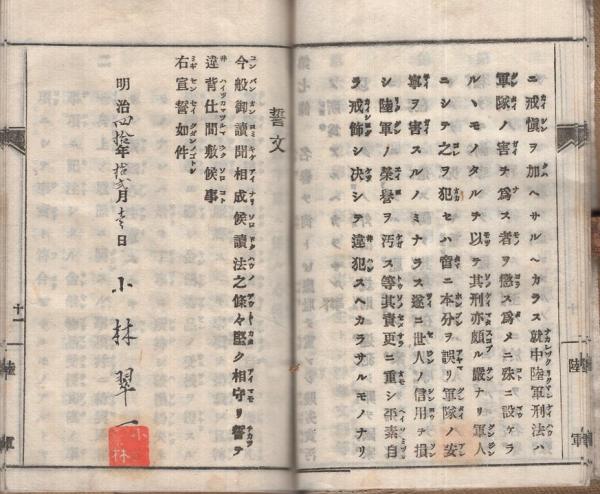 ニ戒愼ヲ加ヘサルヘカラス就中陸軍刑法ハ
軍隊ノ害ヲ爲ス者ヲ懲ス爲メニ殊ニ設ケラ
ルヽモノタルヲ以テ其刑亦頗ル嚴ナリ軍人
ニシテ之ヲ犯セハ啻ニ本分ヲ誤リ軍隊ノ安
寧ヲ害スルノミナラス遂ニ世人ノ信用ヲ損
シ陸軍ノ榮譽ヲ汚ス等其責更ニ重シ平素自
ラ戒飭シ決シテ違犯スヘカラサルモノナリ
陸軍
誓文
今般御讀聞相成候讀法之條々堅ク相守リ誓テ
違背仕間敷候事
右宣誓如件
明治四拾年拾弐月 日
小林翠一
小林
十一
陸軍